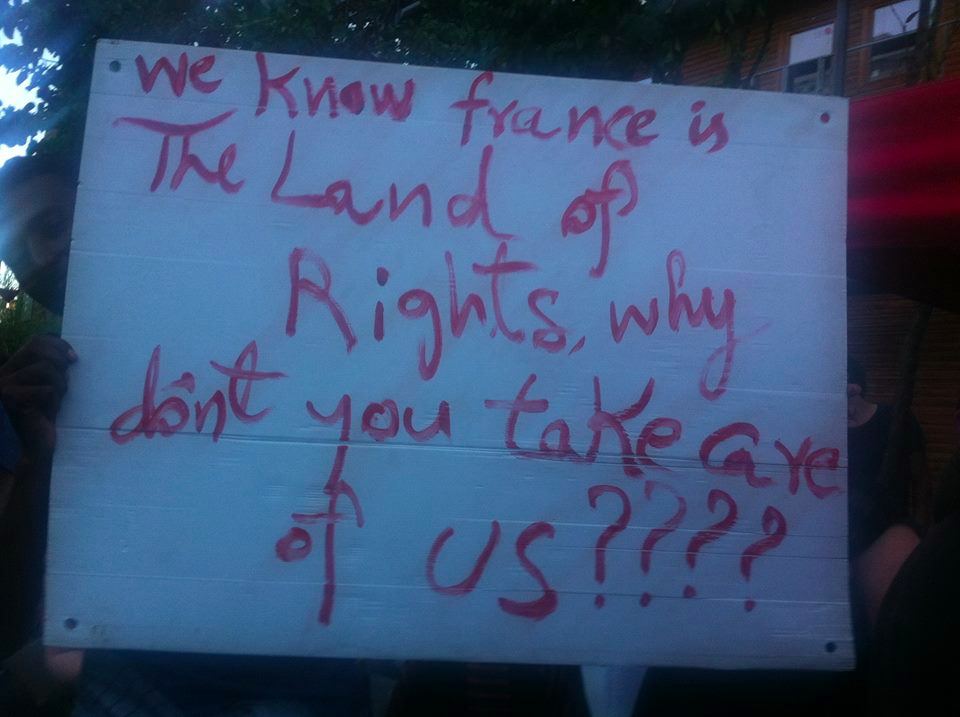 we know france is
The Land of
Rights, why
don't you take care
of us????